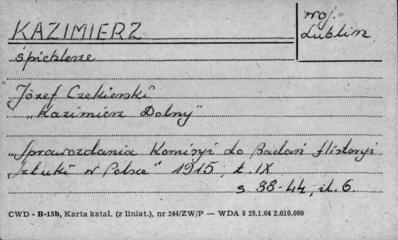 KAZIMIERZ
woj.
Lublin
śpichlerze
Józef Czekierski
„Kazimierz Dolny"
„Sprawozdania Komisyi do Badań Historyi
Sztuki w Polsce" 1915, t. IX
s 38-44, il. 6.
CWD - B-15b, Karta katal. (z liniat.), nr 244/ZW/P — WDA 8 25.1.64 2.010.000